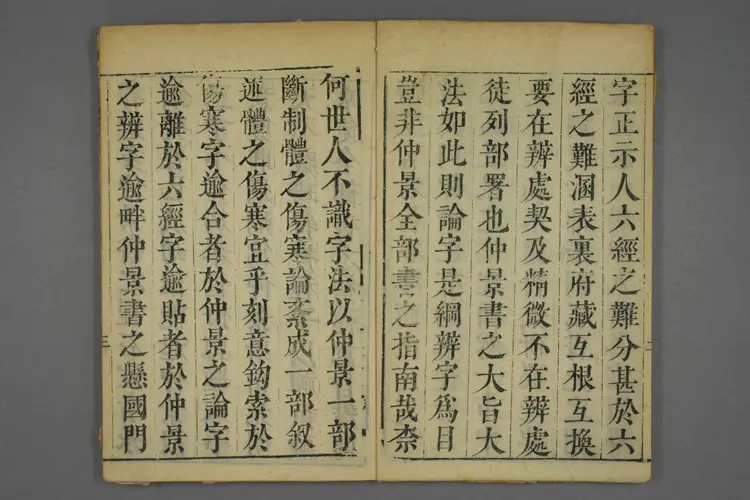 字正示人六經之難分甚於六
經之難溷表裏府藏互根互換
要在辨處契及精微不在辨處
徒列部署也仲景書之大旨大
法如此則論字是綱辨字爲目
豈非仲景全部書之指南哉柰
何世人不識字法以仲景一部
斷制體之傷寒論紊成一部叙
述體之傷寒宜乎刻意鈎索於
傷寒字逾合者於仲景之論字
逾離於六經字逾貼者於仲景
之辨字逾畔仲景書之懸國門
二
三